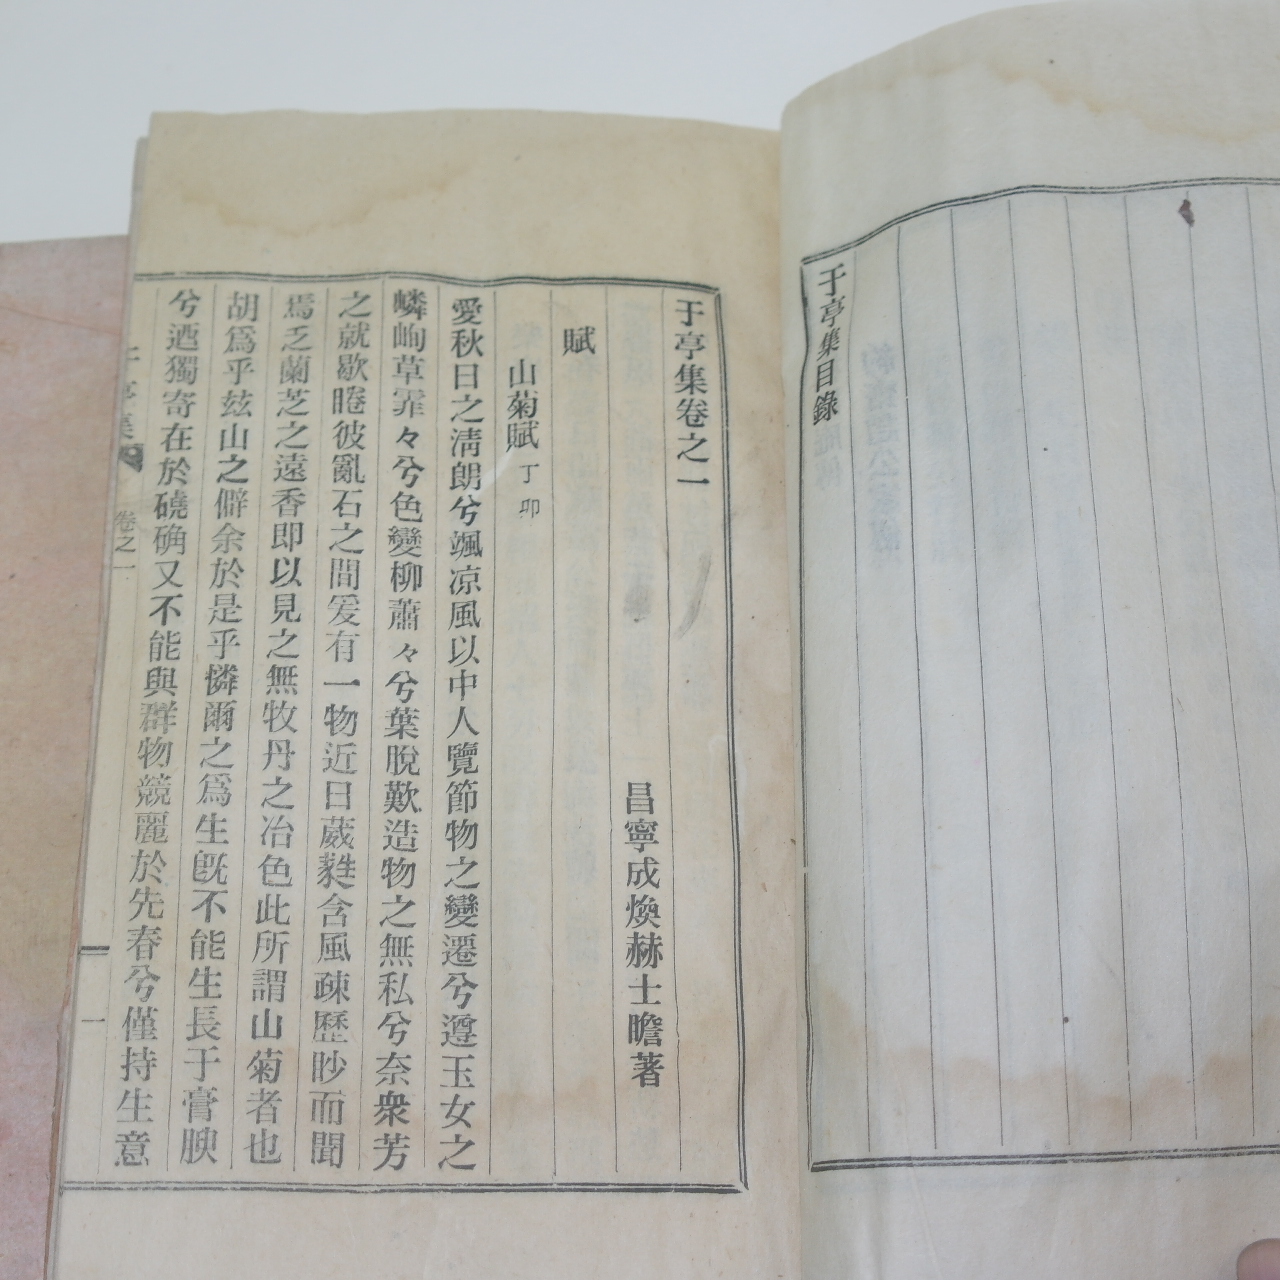 于亭集目錄
于亭集卷之一
昌寧成煥赫士瞻著
賦
山菊賦 丁卯
愛秋日之淸朗兮颯凉風以中人覽節物之變遷兮遵玉女之
嶙峋草霏々兮色變柳蕭々兮葉脫歎造物之無私兮奈衆芳
之就歇睠彼亂石之間爰有一物近日葳蕤含風疎歷眇而聞
焉乏蘭芝之遠香即以見之無牧丹之冶色此所謂山菊者也
胡爲乎玆山之僻余於是乎憐爾之爲生旣不能生長于膏腴
兮迺獨寄在於磽确又不能與群物競麗於先春兮僅持生意
于亭集
卷之一
一